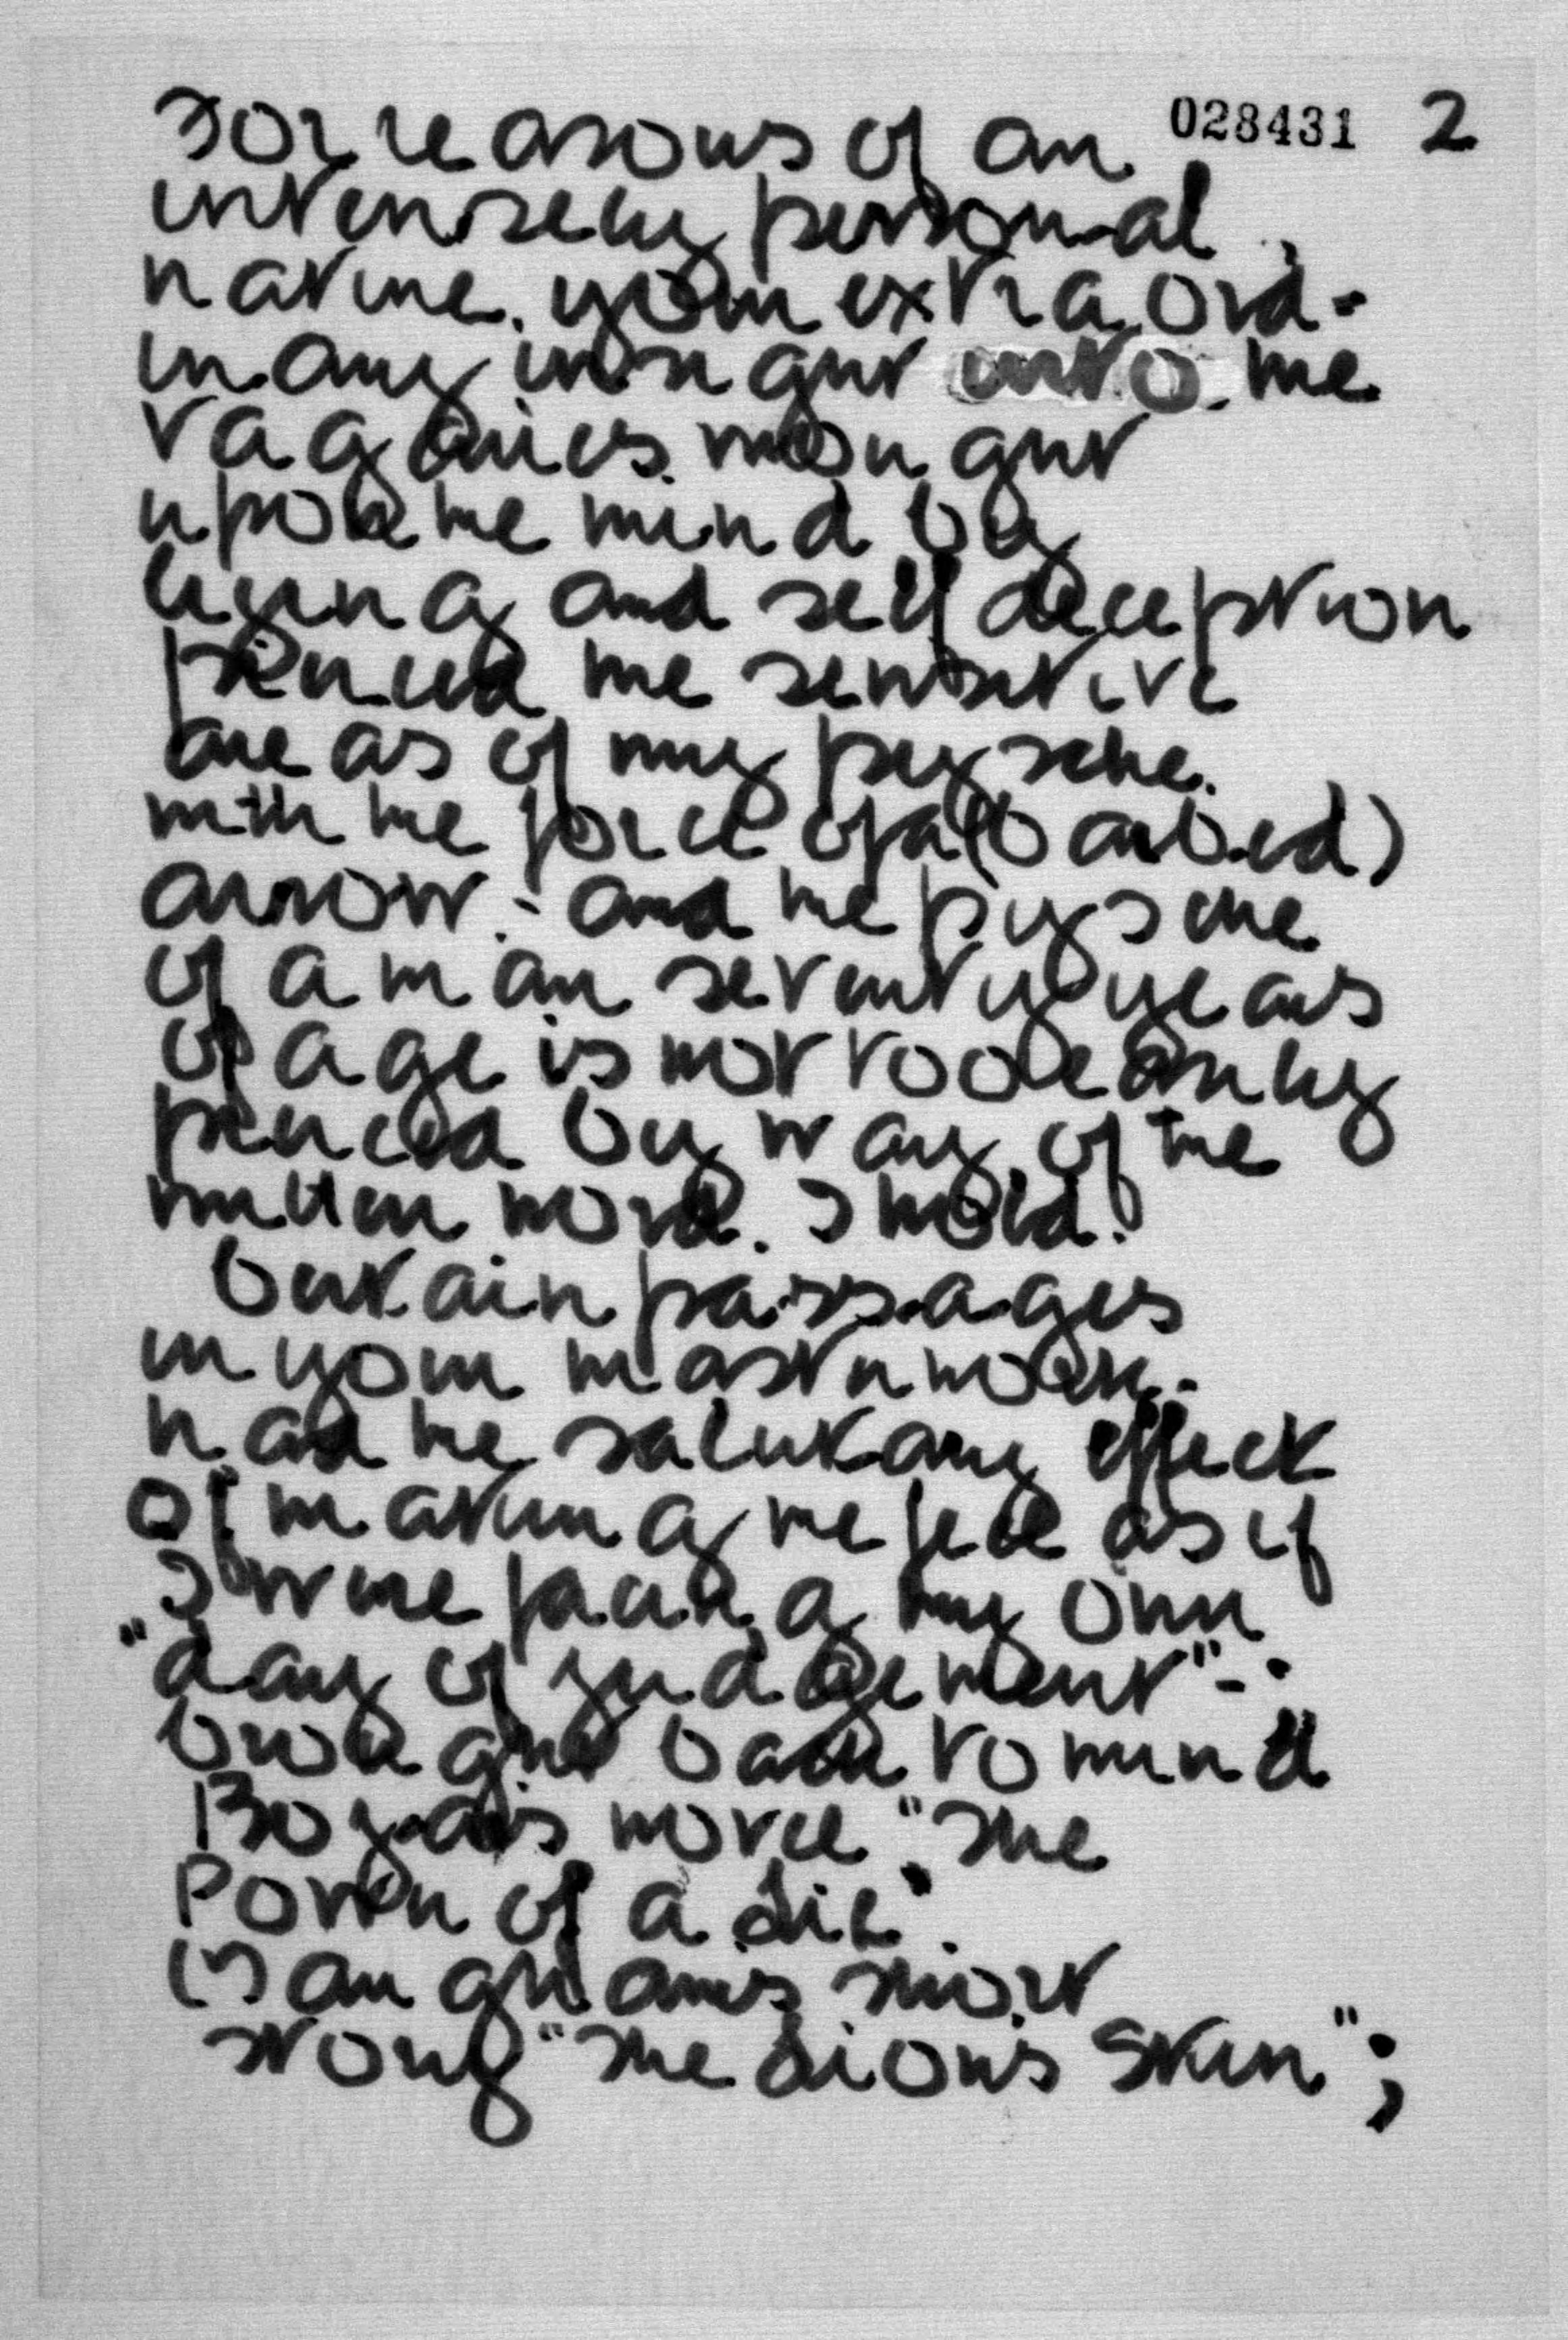 028431 2
For reasons of an
intensely personal
nature. your extraord-
inary insight into the
vagaries wrought
upon the mind by
lying and self deception
pierced the sensitive
areas of my pysche.
with the force of a (barbed)
arrow - and the pysche
of a man seventy years
of age is not too easily
pierced by way of the
written word. I hold.
Certain passages
in your masterwork -
had the salutary effect
of making me feel as if
I were facing my own
"day of judgement" -
brought back to mind
Bojais novel "The
Power of a Lie".
Maughams short
story "The Lion's Skin";